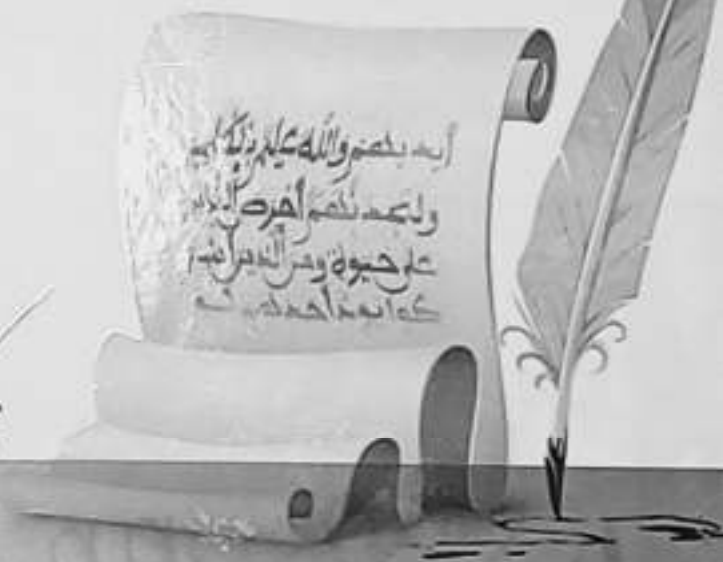 أيديهم والله عليم بالظلمين
ولتجدنهم أحرص الناس
على حيوة ومن الذين أشر
كوا يود أحدهم لو